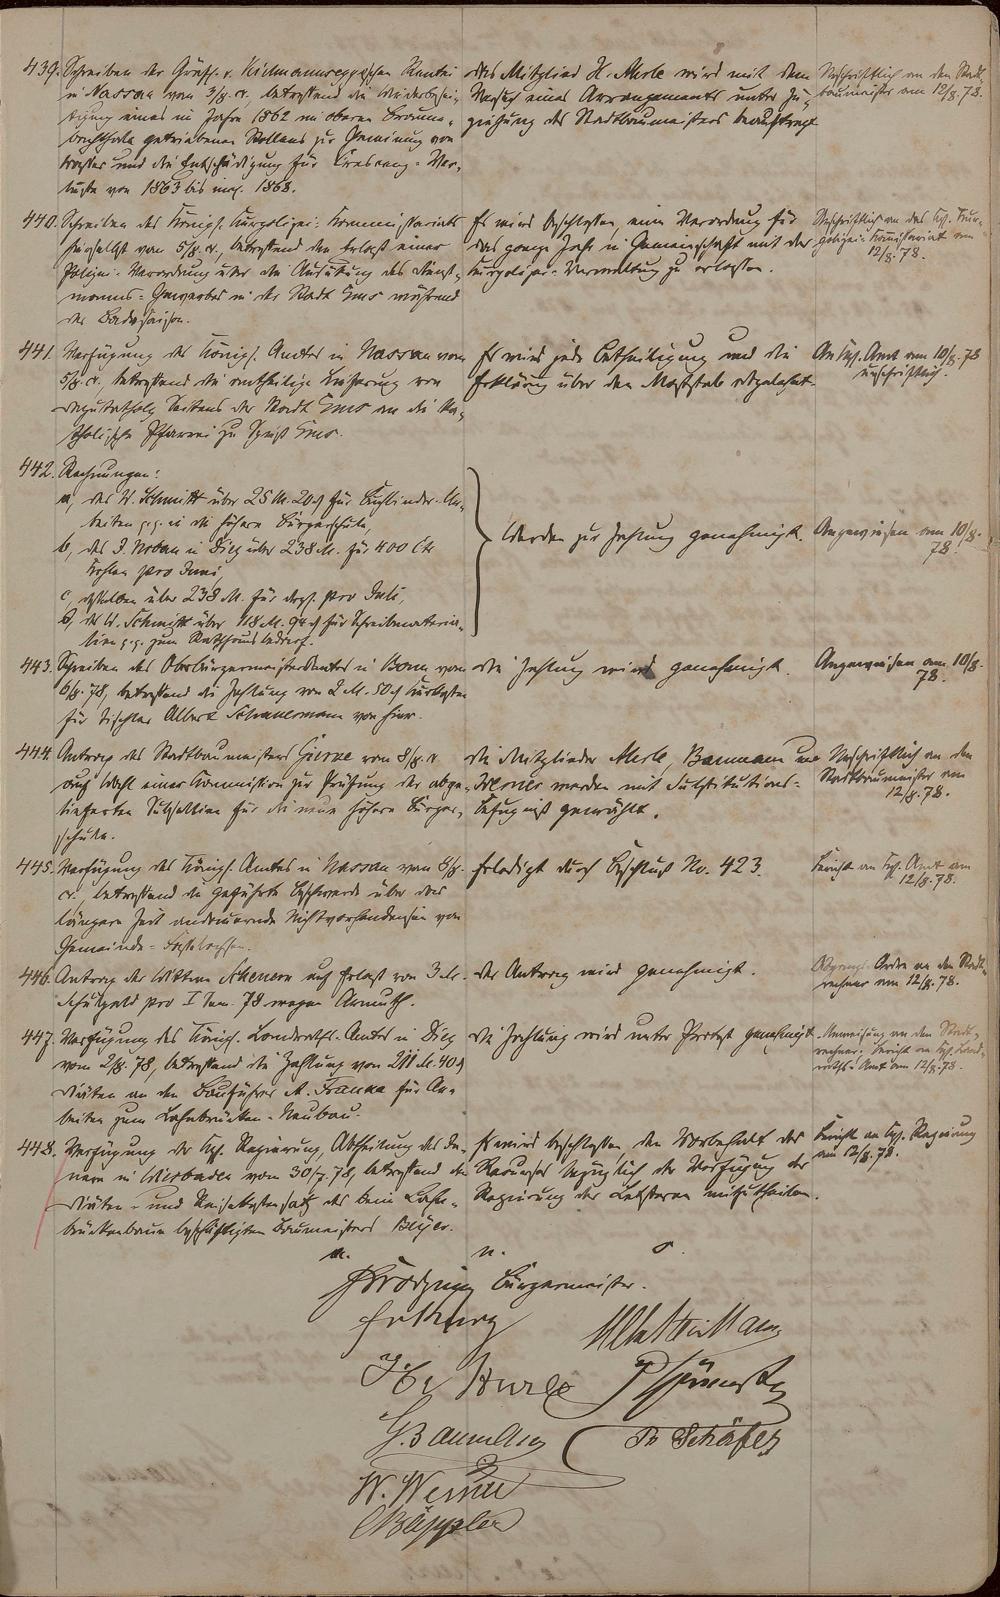 439. Schreiben der Gräfl. v. Kielmannsegge'schen Rentei
in Nassau vom 3/8. cr., betreffend die Wiederbesei-
tigung eines im Jahre 1862 im oberen Braune-
bachthale getriebenen Stollens zur Gewinnung von
Wasser und die Entschädigung für Creszenz-Ver-
luste von 1863 bis incl. 1868.
Das Mitglied H. Merle wird mit dem
Versuch eines Arrangements unter Zu-
ziehung des Stadtbaumeisters beauftragt
Urschriftlich an den Stadt-
baumeister am 12/8.78.
440. Schreiben des Königl. Curpolizei-Kommissariats
hierselbst vom 5/8. cr., betreffend den Erlaß einer
Polizei-Verordnung über die Ausübung des Dienst-
manns-Gewerbes in der Stadt Ems während
der Badesaison.
Es wird beschlossen, eine Verordnung für
das ganze Jahr in Gemeinschaft mit der
Curpolizei-Verwaltung zu erlassen.
Urschriftlich an das Kgl. Cur-
polizei-Commissariat am
12/8.78.
441. Verfügung des Königl. Amtes in Nassau vom
5/8. cr., betreffend die antheilige Lieferung von
Deputatholz Seitens der Stadt Ems an die Ka-
tholische Pfarrei zu Ems.
Es wird jede Betheiligung und die
Erklärung über den Maßstab abgelehnt.
An Kgl. Amt am 10/8.78
urschriftlich.
442. Rechnungen:
a, des W. Schmitt über 25 M. 20 ₰ für Buchbinder-Ar-
beiten p.p. in die höhere Bürgerschule,
b, des J. in Diez über 238 M. für 400 Ctr
Kohlen pro Juni,
c, desselben über 238 M. für desgl. pro Juli,
d, des W. Schmitt über 118 M. 94 ₰ für Schreibmateria-
lien p.p. zum Rathhausbedarf.
Werden zur Zahlung genehmigt.
Angewiesen am 10/8.
78.
443. Schreiben des Oberbürgermeisteramtes in Bonn vom
6/8.78, betreffend die Zahlung von 2 M. 50 ₰ Kurkosten
für Tischler Albert von hier.
Die Zahlung wird genehmigt.
Angewiesen am 10/8.
78.
444. Antrag des Stadtbaumeisters vom 8/8. cr
auf Wahl einer Commission zur Prüfung der abge-
lieferten Subsellien für die neue höhere Bürger-
schule.
Die Mitglieder Merle, Baumann u
Werner werden mit Substitutions-
Befugniß gewählt.
Urschriftlich an den
Stadtbaumeister am
12/8.78.
445. Verfügung des Königl. Amtes in Nassau vom 8/8.
cr., betreffend die geführte Beschwerde über das
längere Zeit andauernde Nichtvorhandensein von
Gemeinde-
Erledigt durch Beschluß No. 423.
Bericht an Kgl. Amt am
12/8.78.
446. Antrag der Wittwe auf Erlaß von 3 M.
Schulgeld pro I Sem. 78 wegen Armuth.
Der Antrag wird genehmigt.
Abgangs-Ordre an den Stadt-
rechner am 12/8.78.
447. Verfügung des Königl. Landraths-Amtes in Diez
vom 2/8.78, betreffend die Zahlung von 211 M. 40 ₰
Diäten an den Bauführer A. Franke für Ar-
beiten zum Lahnbrücken-Neubau.
Die Zahlung wird unter Protest genehmigt
Anweisung an den Stadt-
rechner. Bericht an Kgl. Land-
raths-Amt am 12/8.78.
448. Verfügung der Kgl. Regierung, Abtheilung des In-
nern in Wiesbaden vom 30/7.78, betreffend den
Diäten- und Reisekostensatz des beim Lahn-
brückenbau beschäftigten Baumeisters
Es wird beschlossen, den Vorbehalt des
Recurses bezüglich der Verfügung der
Regierung der Letzteren mitzutheilen.
Bericht an Kgl. Regierung
am 12/8.78.
Bürgermeister.
G. Baumann
Schäfer
W. Werner